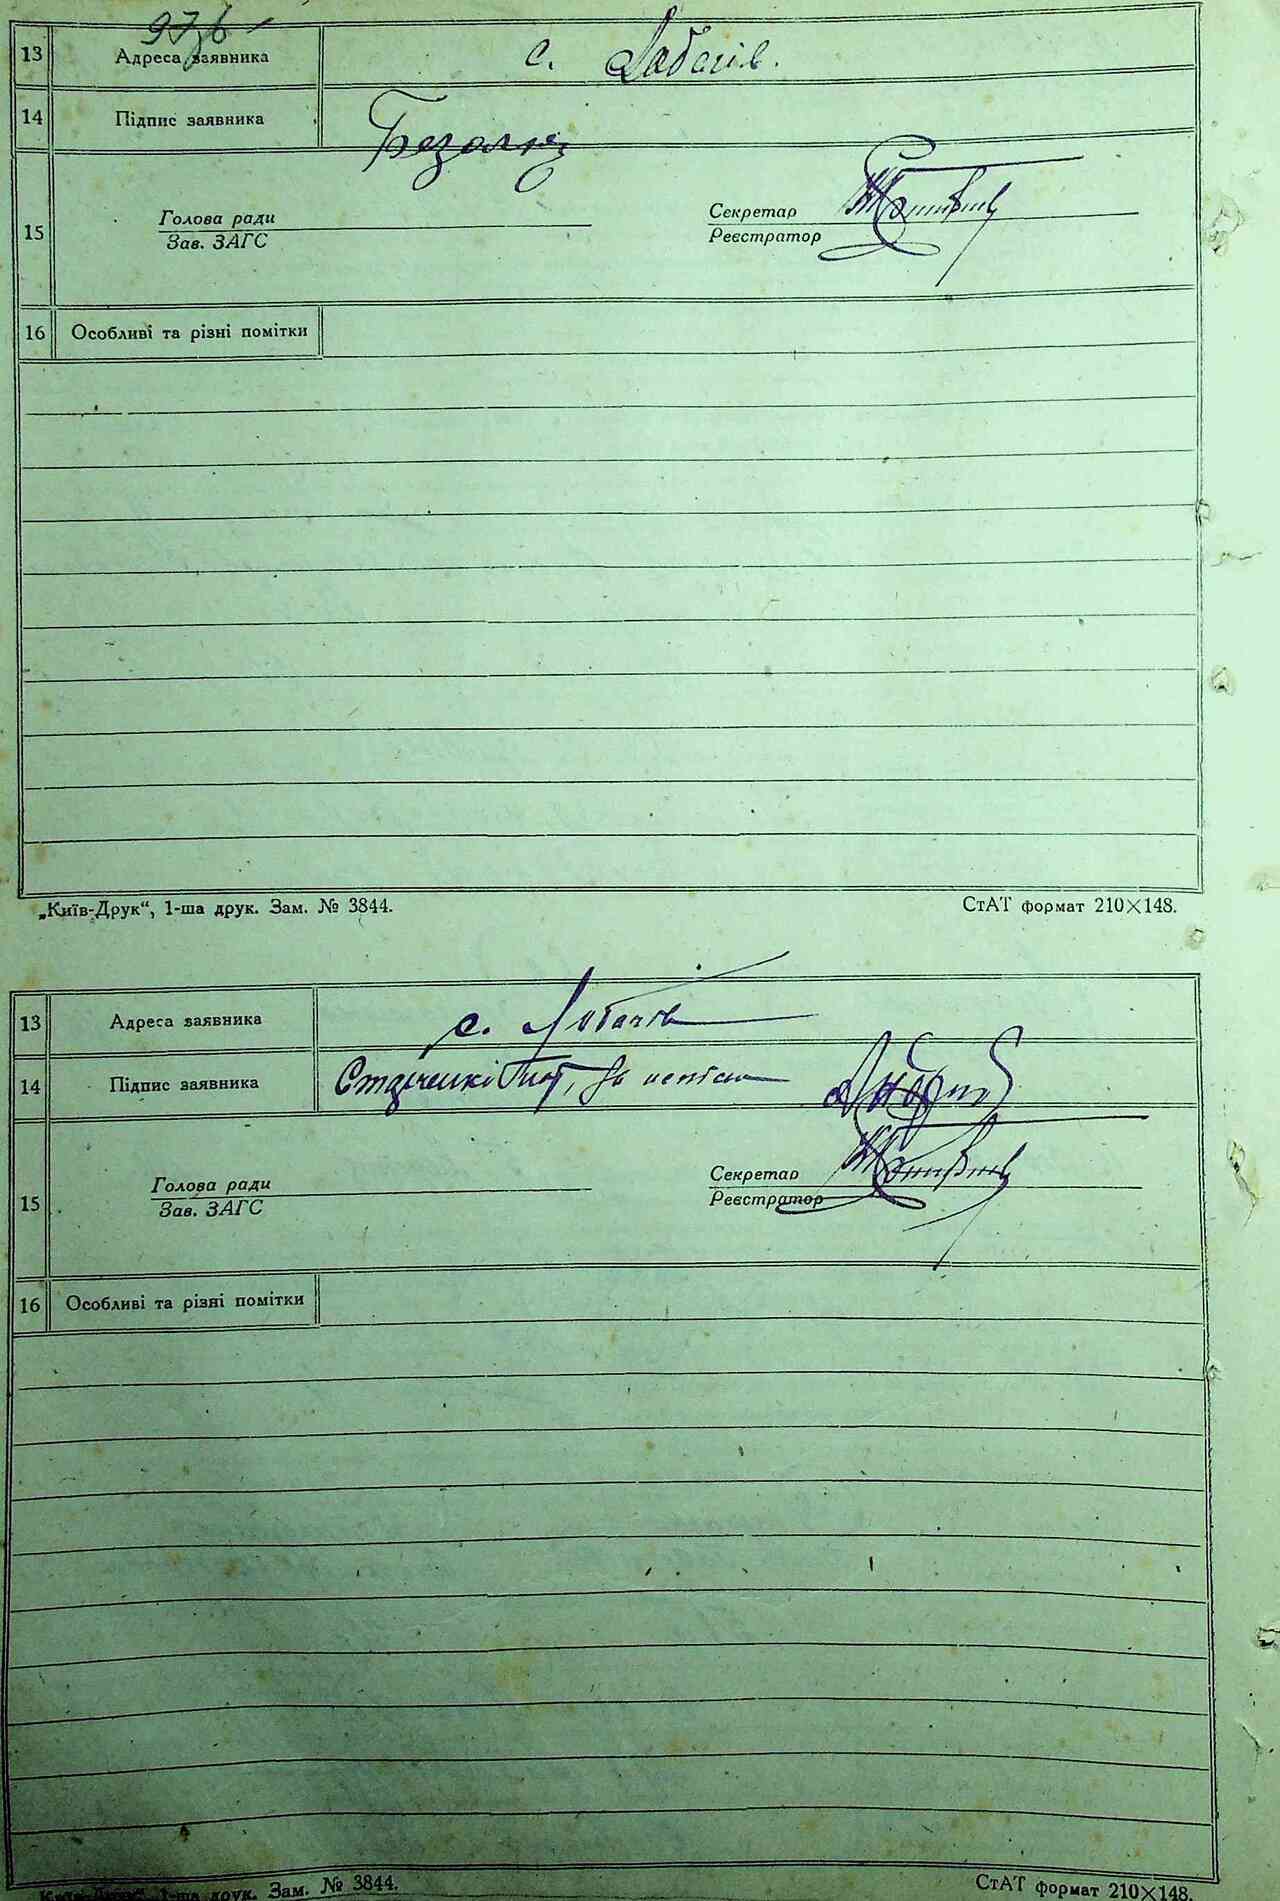 97зв
13 Адреса заявника с. Лобачів.
14 Підпис заявника
15 Голова ради Секретар
Зав. ЗАГС Реєстратор
16 Особливі та різні помітки
„Київ-Друк“, 1-ша друк. Зам. № 3844. СтАТ формат 210×148.
13 Адреса заявника с. Лобачів
14 Підпис заявника
15 Голова ради Секретар
Зав. ЗАГС Реєстратор
16 Особливі та різні помітки
„Київ-Друк“, 1-ша друк. Зам. № 3844. СтАТ формат 210×148.